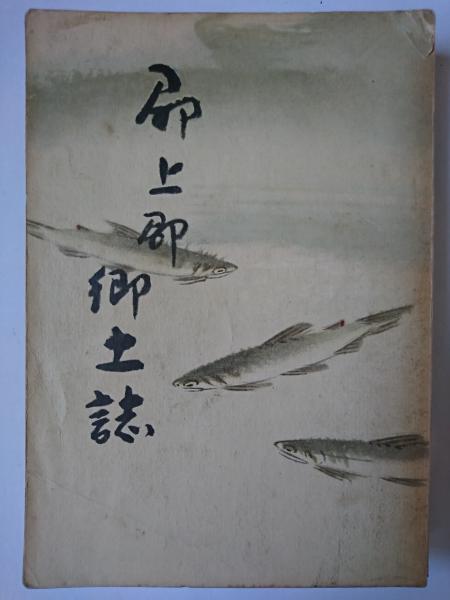 郡上郡
郷土誌